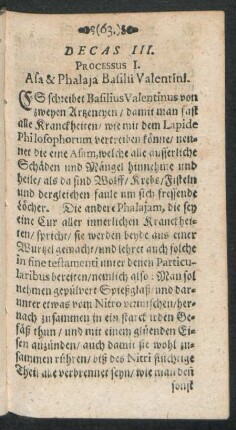 (63.)
DECAS III.
PROCESSUS I.
Asa & Phalaja Basilii Valentini.
ES schreibet Basilius Valentinus von
zweyen Artzeneyen / damit man fast
alle Kranckheiten / wie mit dem Lapide
Philosophorum vertreiben könne / nen-
net die eine Asam, welche alle äusserliche
Schäden und Mängel hinnehme und
heile / als da sind Wolff / Krebs / Fisteln
und dergleichen faule um sich fressende
Löcher. Die andere Phalajam, die sey
eine Cur aller innerlichen Kranckhei-
ten / spricht / sie werden beyde aus einer
Wurtzel gemacht / und lehret auch solche
in fine testamenti unter denen Particu-
laribus bereiten / nemlich also: Man sol
nehmen gepülvert Spießglaß / und dar-
unter etwas vom Nitro vermischen / her-
nach zusammen in ein starck irden Ge-
fäß thun / und mit einem glüenden Ei-
sen anzünden / auch damit sie wohl zu-
sammen rühren / biß des Nitri flüchtige
Theil alle verbrennet seyn / wie man den
sonst